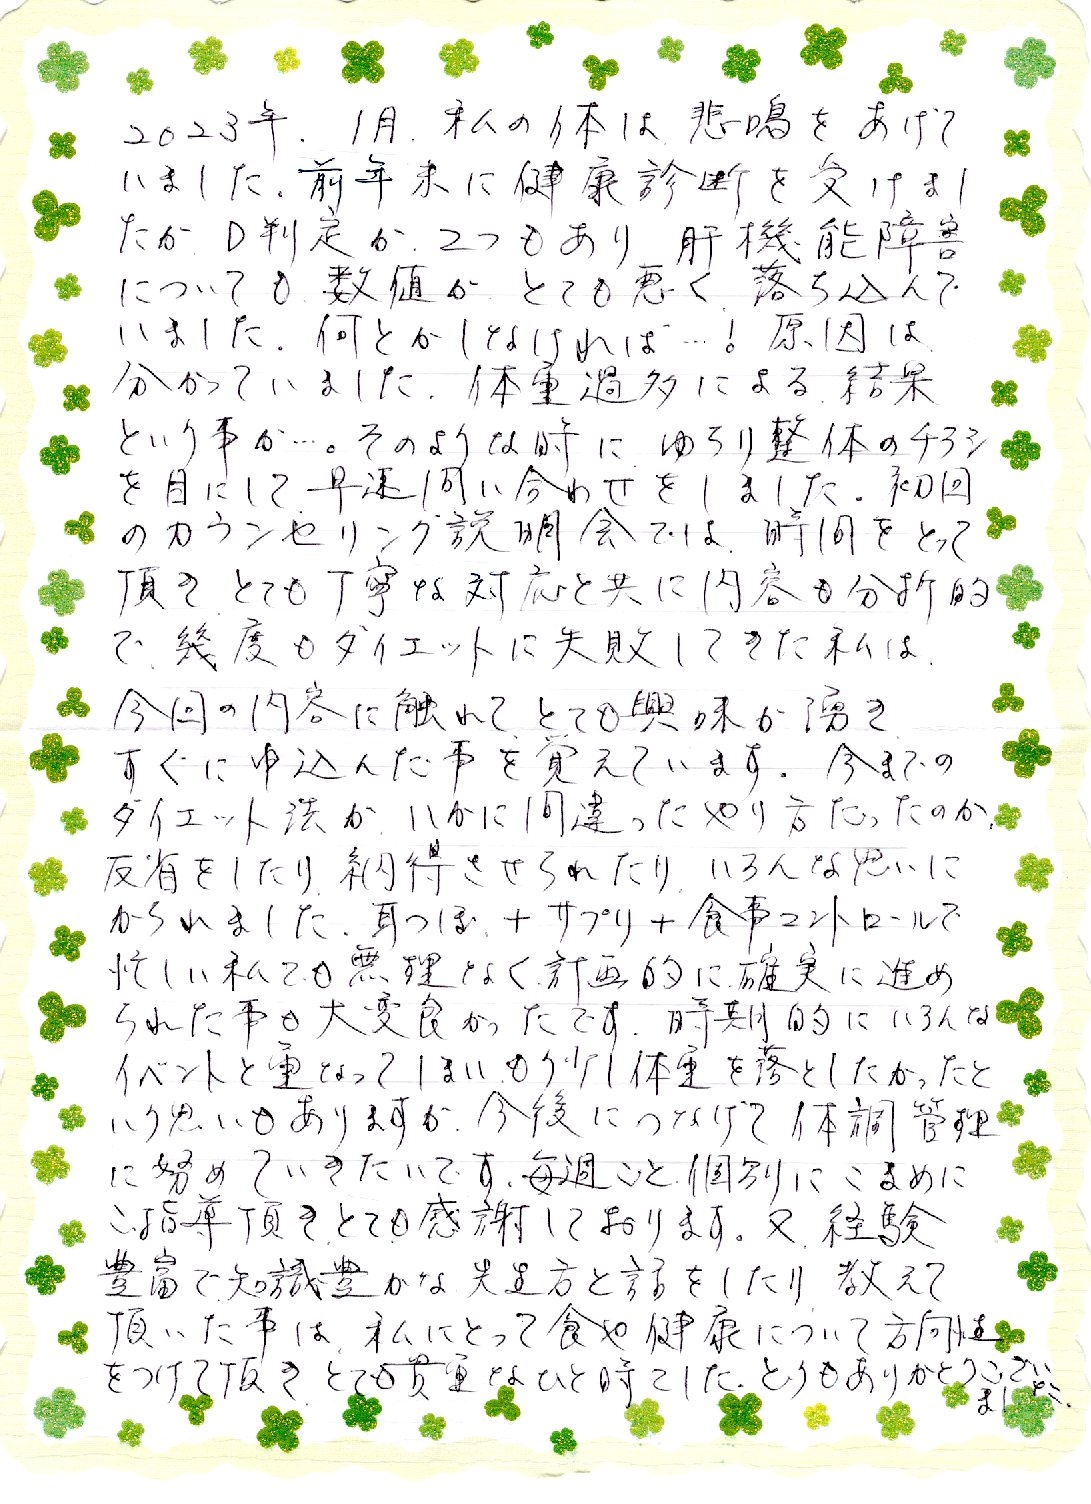 2023年、1月、私の体は、悲鳴をあげて
いました。前年末に健康診断を受けまし
たが、D判定が、2つもあり、肝機能障害
についても、数値が、とても悪く、落ち込んで
いました。何とかしなければ…！原因は、
分かっていました、体重過多による、結果
という事が…。そのような時に、ゆらり整体のチラシ
を目にして早速問い合わせをしました。初回
のカウンセリング説明会では、時間をとって
頂き、とても丁寧な対応と共に、内容も分析的
で、幾度もダイエットに失敗してきた私は、
今回の内容に触れて、とても興味が湧き
すぐに申込んだ事を覚えています。今までの
ダイエット法が、いかに間違ったやり方だったのか、
反省をしたり、納得させられたり、いろんな思いに
かられました、耳つぼ、+サプリ+食事コントロールで
忙しい私でも無理なく計画的に確実に進め
られた事も大変良かったです。時期的にいろんな
イベントと重なってしまい、もう少し体重を落としたかったと
いう思いもありますが、今後につなげて体調管理
に努めていきたいです。毎週ごと、個別にこまめに
ご指導頂き、とても感謝しております。又、経験
豊富で、知識豊かな先生方と話をしたり、教えて
頂いた事は、私にとって食や健康について方向性
をつけて頂き、とても貴重なひと時でした。とうもありがとうござい
ました。